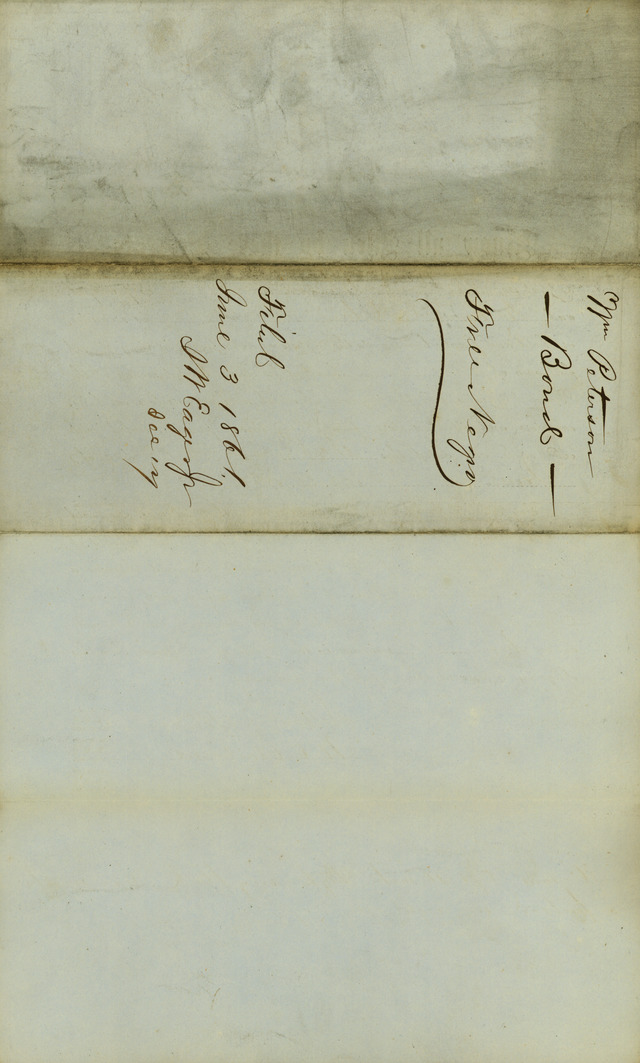 Wm Peterson
— Bond —
Free Negro
Filed
June 3 1861,